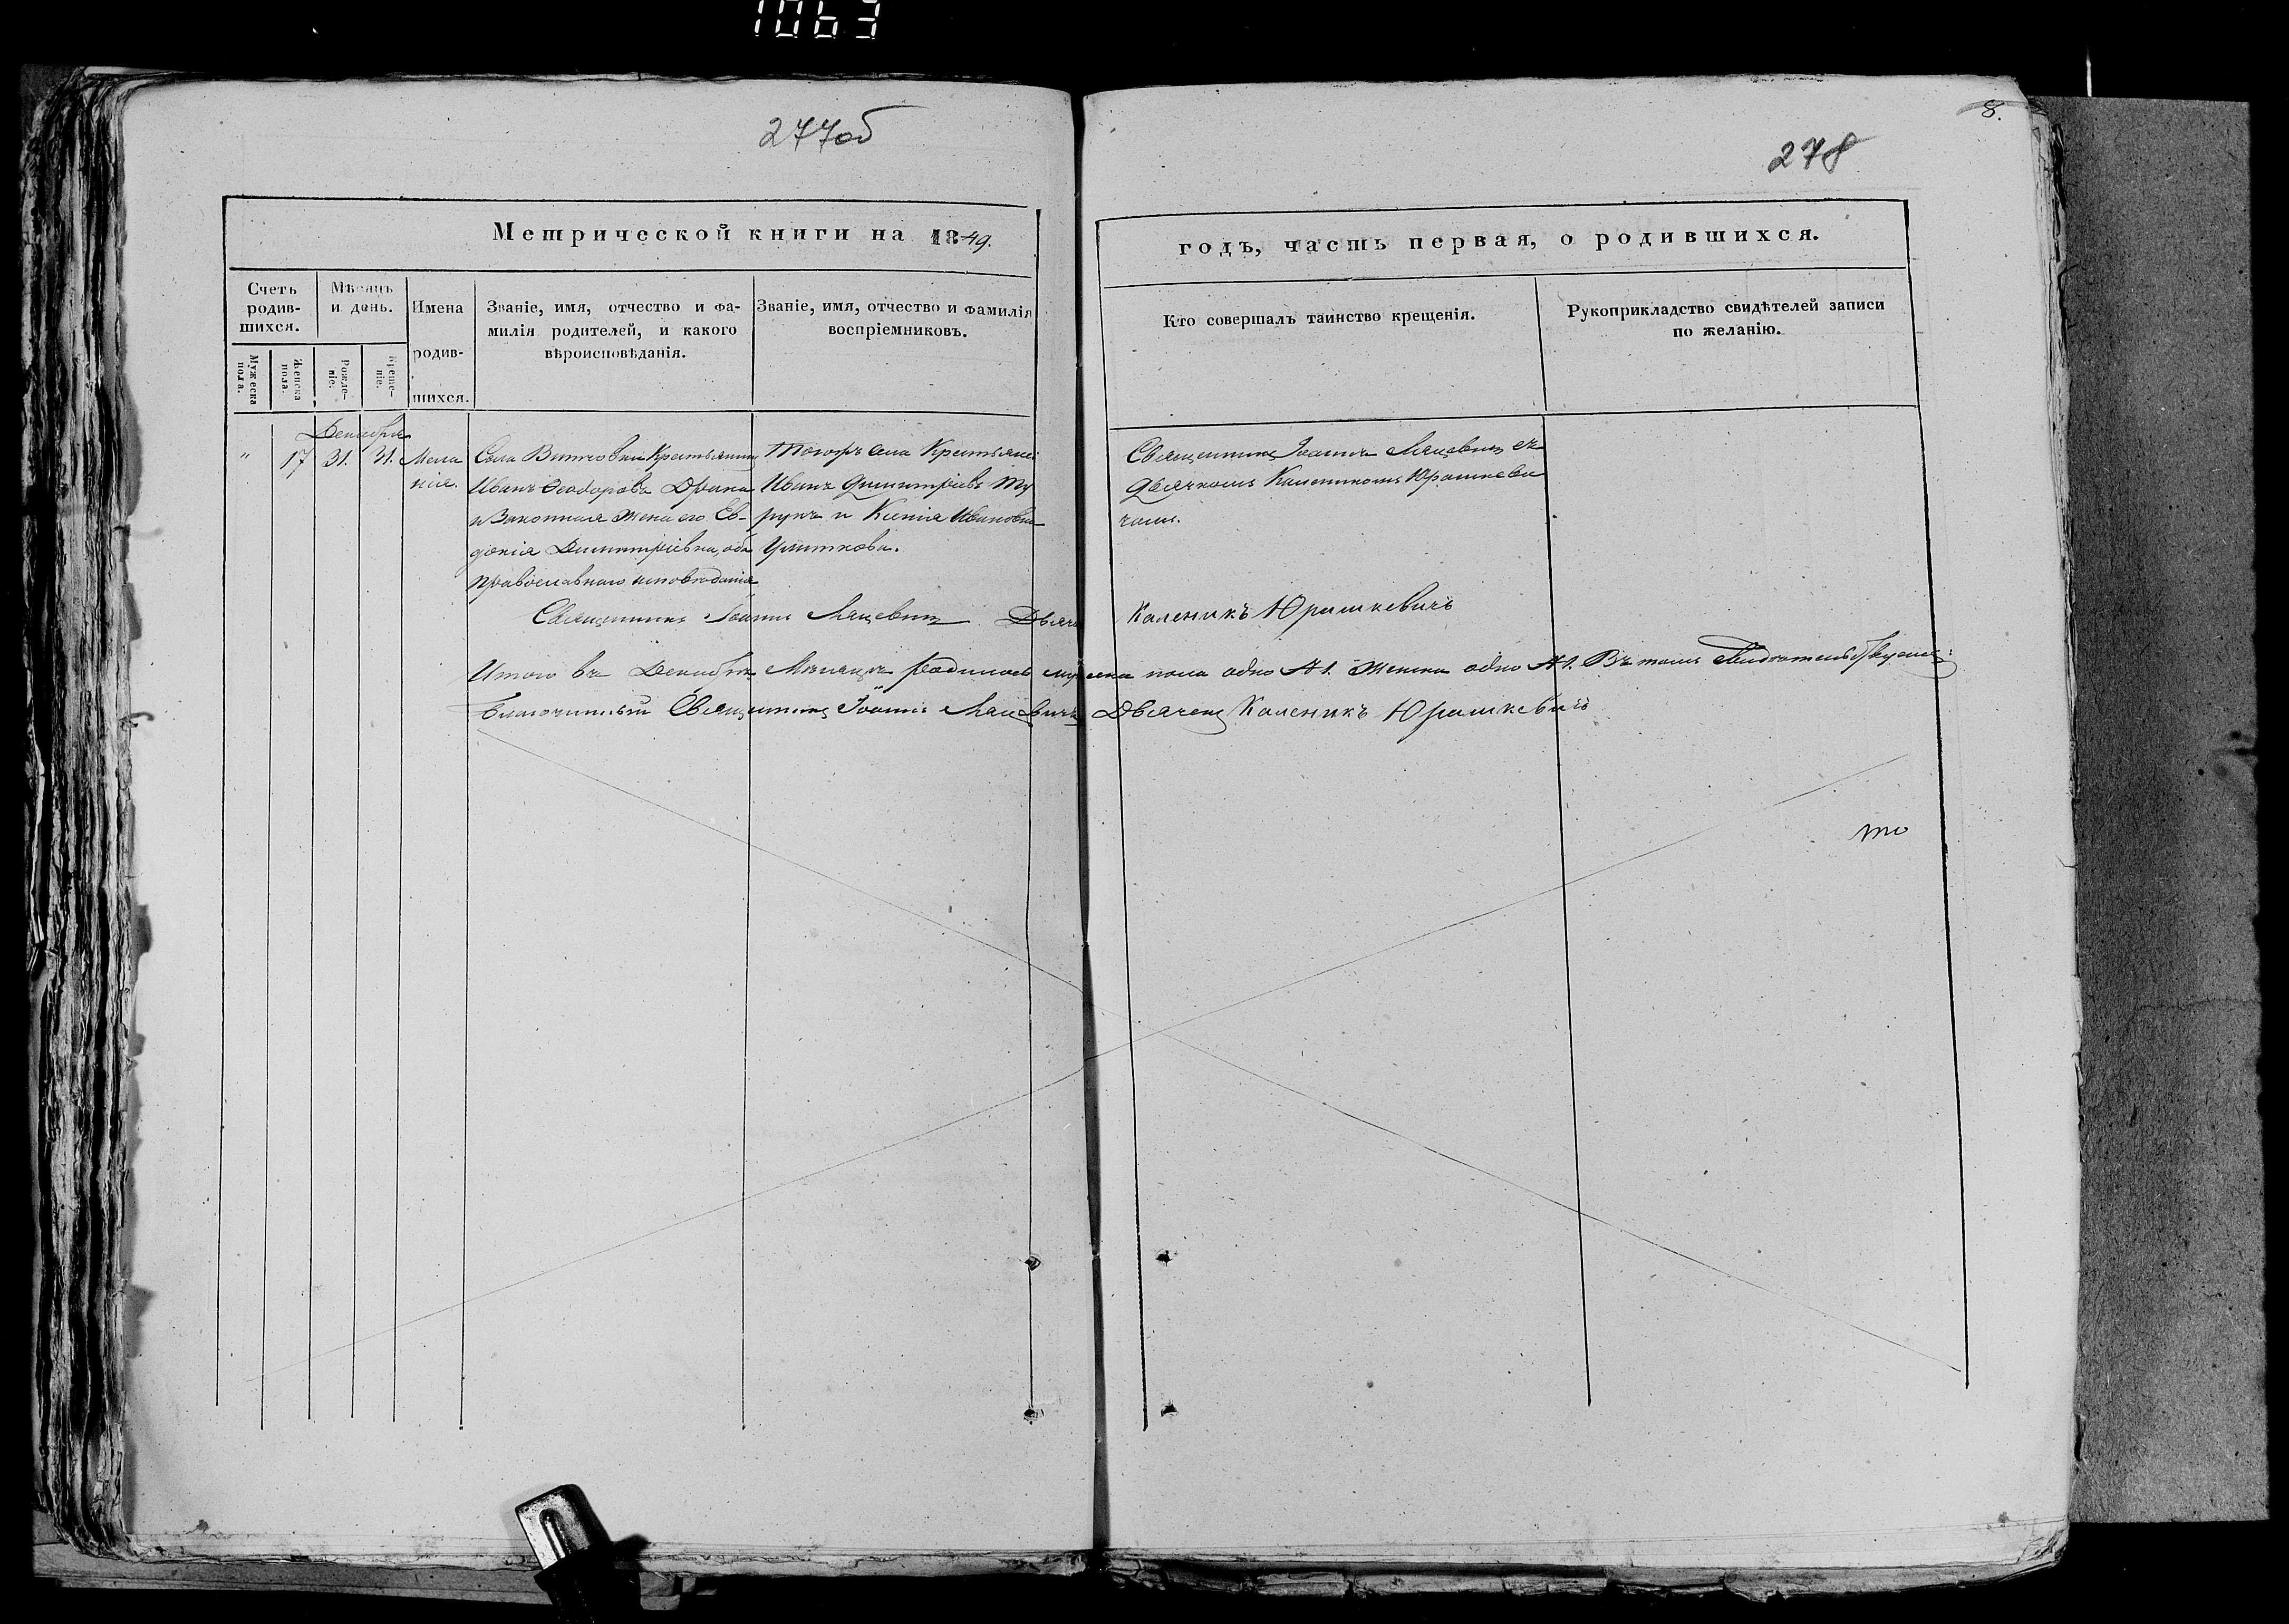 1063
277об
278
8.
Метрической книги на 1849.
годъ, часть первая, о родившихся.
Счетъ родив-шихся.
Мѣсяцъ и день.
Имена родив-шихся.
Званіе, имя, отчество и фа-
милія родителей, и какого
вѣроисповѣданія.
Званіе, имя, отчество и фамилія
воспріемниковъ.
Кто совершалъ таинство крещенія.
Рукоприкладство свидѣтелей записи
по желанію.
Мужеска пола.
Женска пола.
Рожде-ніе.
Креще-ніе.
Декабрь
" 17 31. 31. Мела
нія.
Села Крестьянинъ
Иванъ Ѳеодоровъ
и Законная жена его Ев-
докія Димитріевна, оба
православнаго исповѣданія
Тогожъ села Крестьяне
Иванъ Димитріевъ
и Ксенія Иванова
Священникъ Іоаннъ Мацевичъ съ
Дьячкомъ Каленикомъ Юрашкеви
чемъ.
Священникъ Іоаннъ Мацевичъ Дьячекъ Каленикъ Юрашкевичъ
Итого въ Декабрѣ Мѣсяцѣ родилось мужеска пола одно №1. Женска одно №1. Въ томъ свидѣтельствуемъ:
Благочинный Священникъ Іоаннъ Мацевичъ Дьячекъ Каленикъ Юрашкевичъ